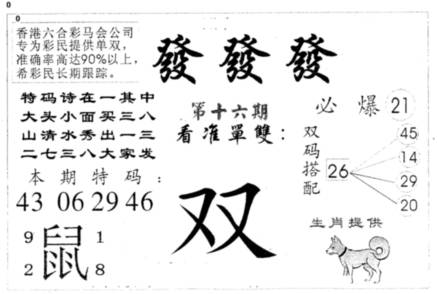 0
0
香港六合彩马会公司
专为彩民提供单双，
准确率高达90%以上，
希彩民长期跟踪。
發發發
特码诗在一其中
大头小面买三八
山清水秀出一三
二七三八大家发
第十六期
看准單雙：
必爆 21
双码搭配
26
45
14
29
20
本期特码：
43 06 29 46
9 1
鼠
2 8
双
生肖提供